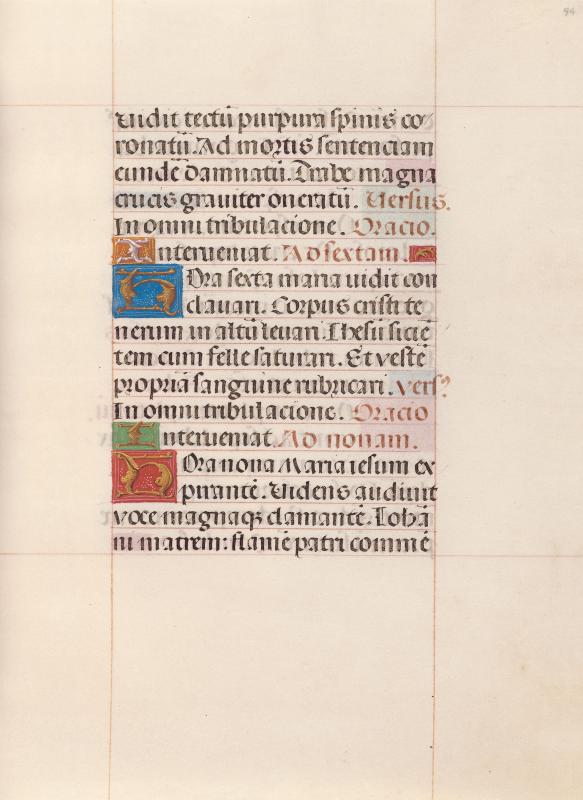 94
Vidit tectū purpura spinis co
ronatū. Ad mortis sentenciam
eundē damnatū. Trabe magna
crucis graviter oneratū. Versus.
In omni tribulacione. Oracio.
Interveniat. Ad sextam.
Hora sexta maria vidit con
clavari. Corpus cristi te
nerum in altū levari. Ihesū siciē
tem cum felle saturari. Et vestē
propriā sanguine rubricari. vers⁹
In omni tribulacione. Oracio
Interveniat. Ad nonam.
Hora nona Maria iesum ex
pirantē. Videns audivit
voce magnaqꝫ clamantē. Iohā
ni matrem: flamē patri commē